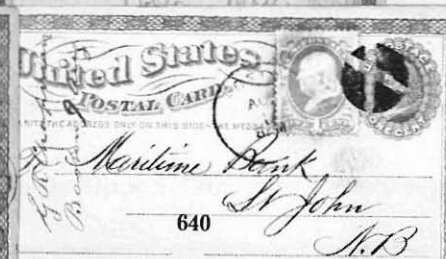 United States
POSTAL CARD.
WRITE THE ADDRESS ONLY ON THIS SIDE - THE MESSAGE
POSTAGE
ONE CENT
Maritime Bank
St John
N.B
640